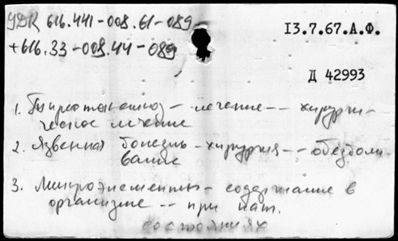 УДК 616.441-008.61-089
+616.33-008.44-089
13.7.67.А.Ф.
Д 42993
1. Тиреотоксикоз -- лечение -- хирурги-
ческое лечение
2. Язвенная болезнь - хирургия -- обезболи
вание
3. Микроэлементы - содержание в
организме -- при пат.
состояниях